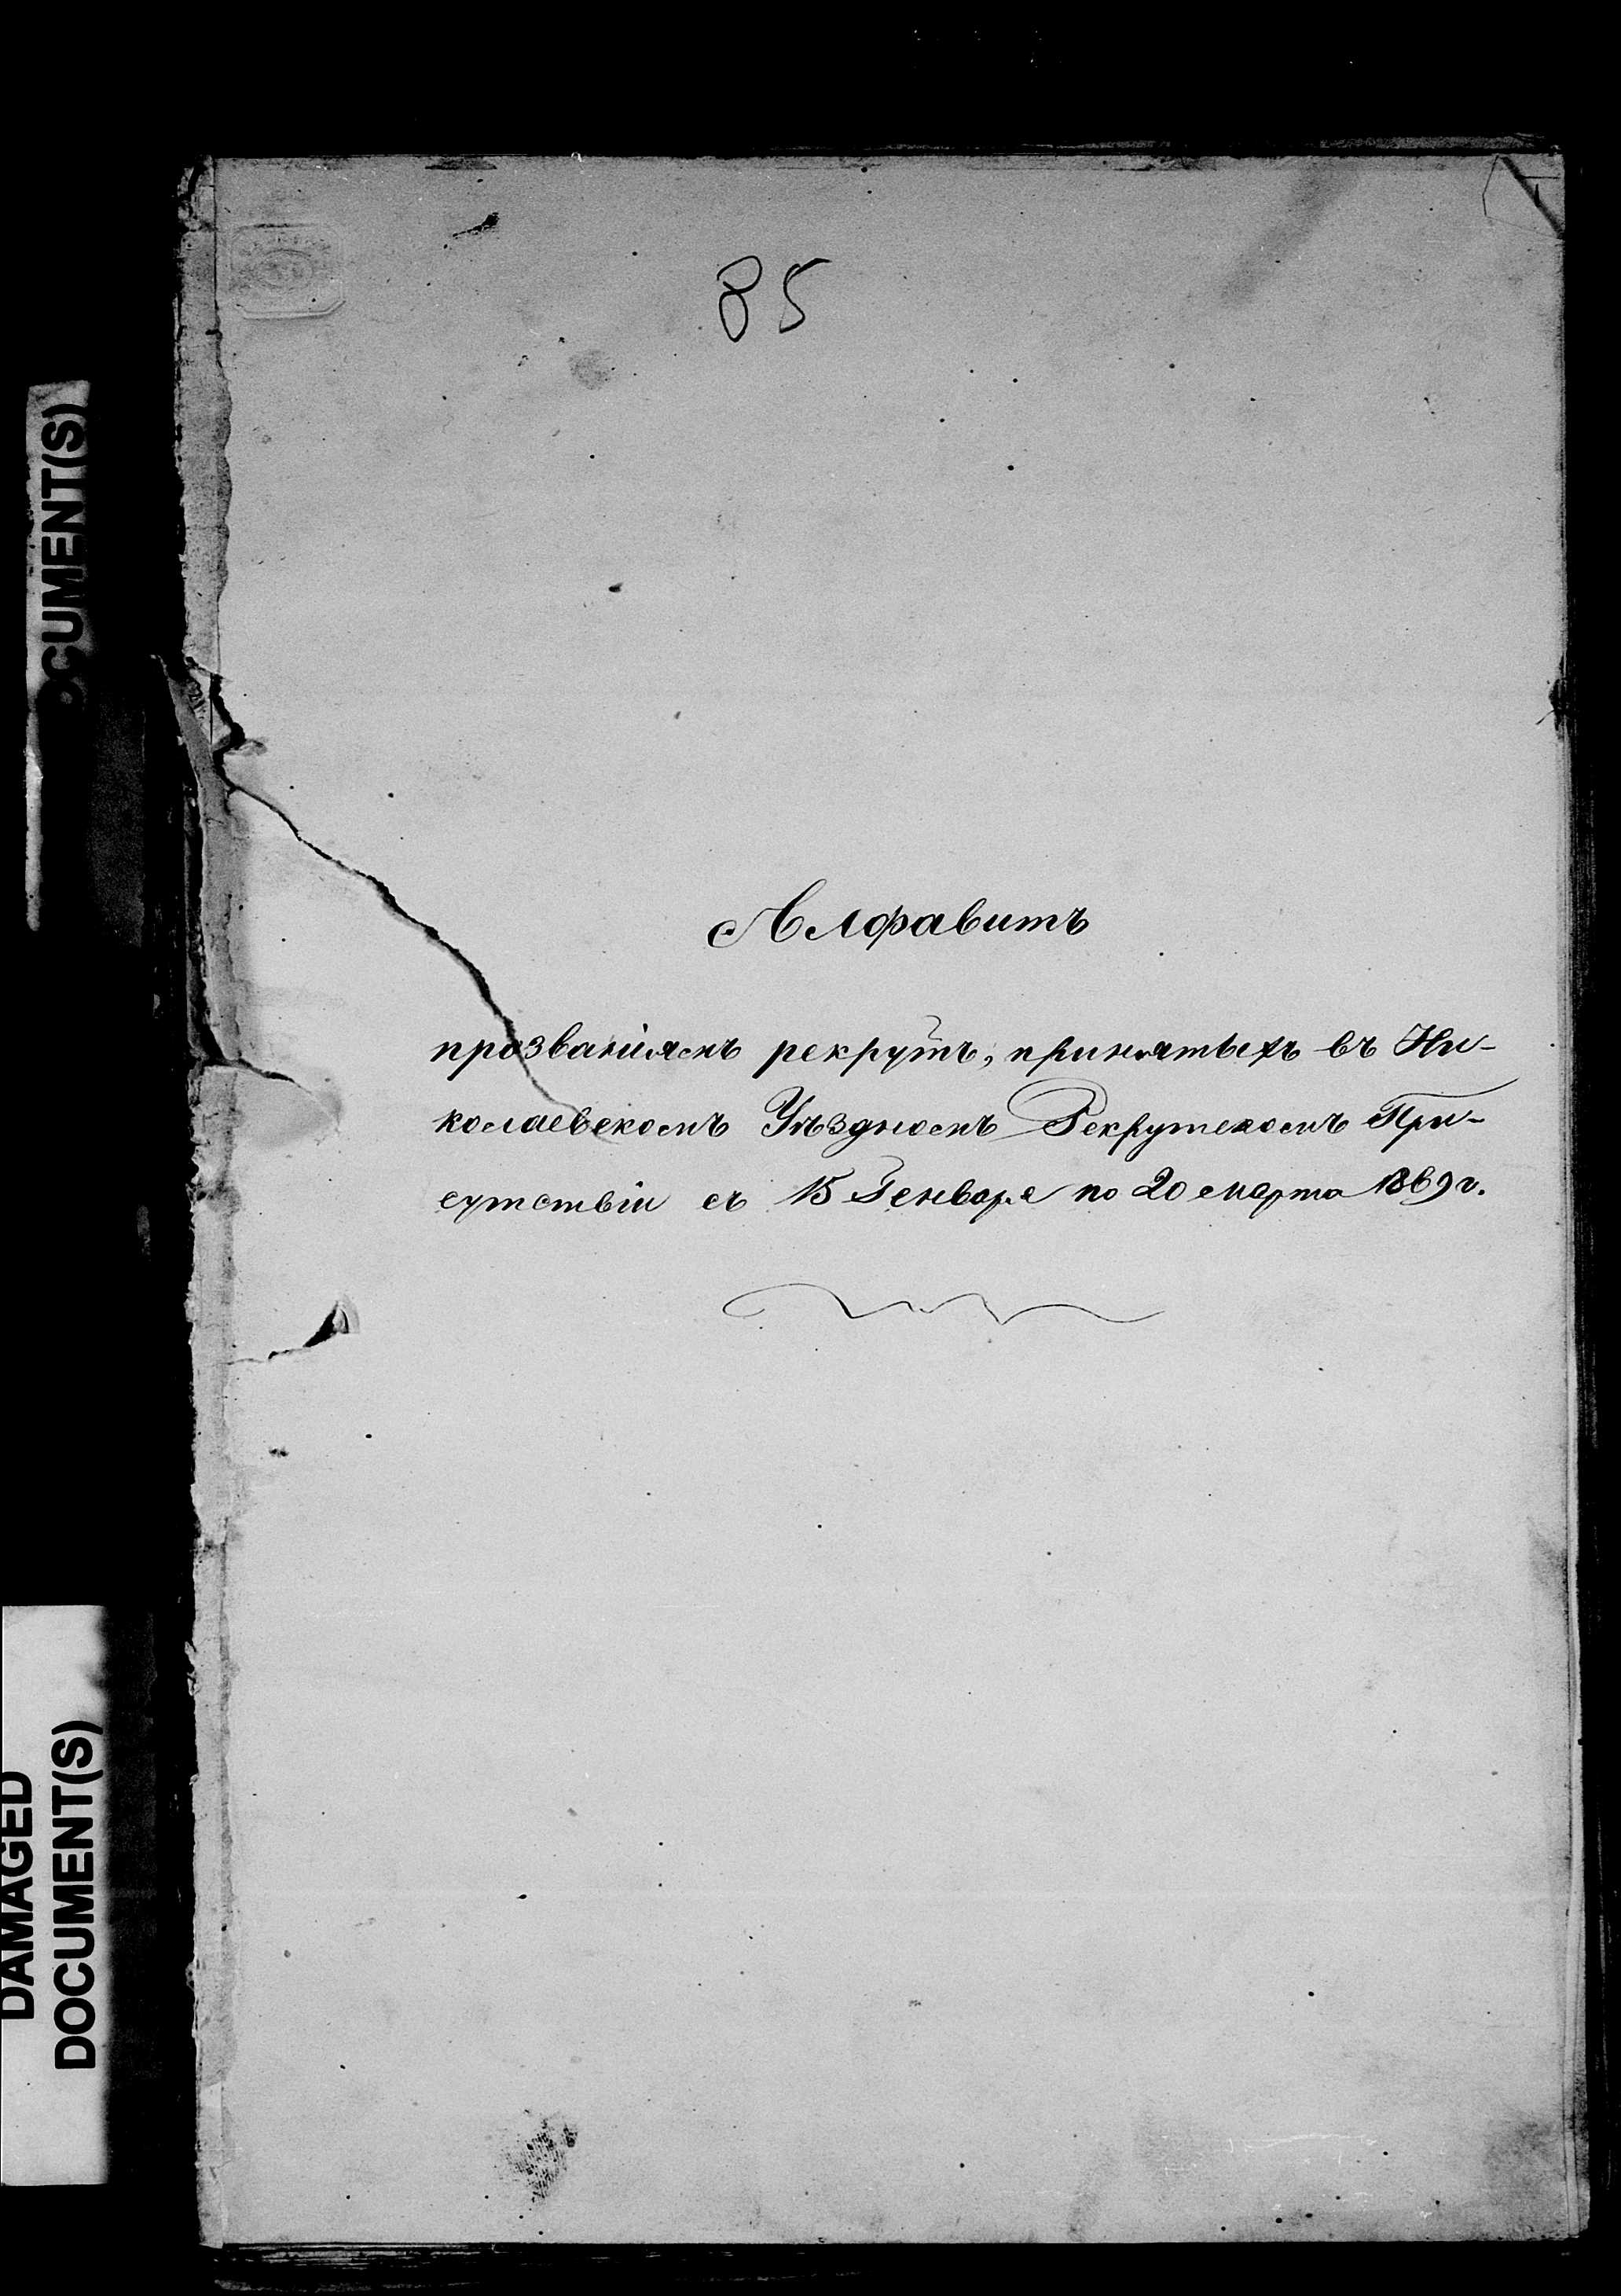 85
Алфавитъ
прозваніямъ рекрутъ, принятыхъ въ Ни-
колаевскомъ Уѣздномъ Рекрутскомъ При-
сутствіи съ 15 Генваря по 20 марта 1869 г.
CUMENT(S)
DAMAGED
DOCUMENT(S)